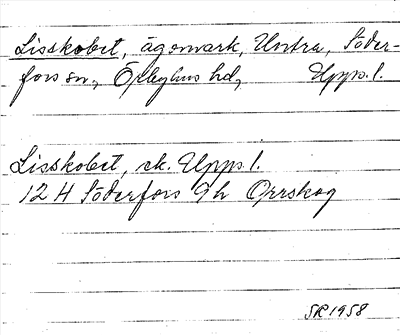 Lisskobet, ägomark, Untra, Söder-
fors sn, Örbyhus hd, Upps. l.
Lisskobet, ek. Upps l.
12 H Söderfors 9 h Orrskog
SR 1958